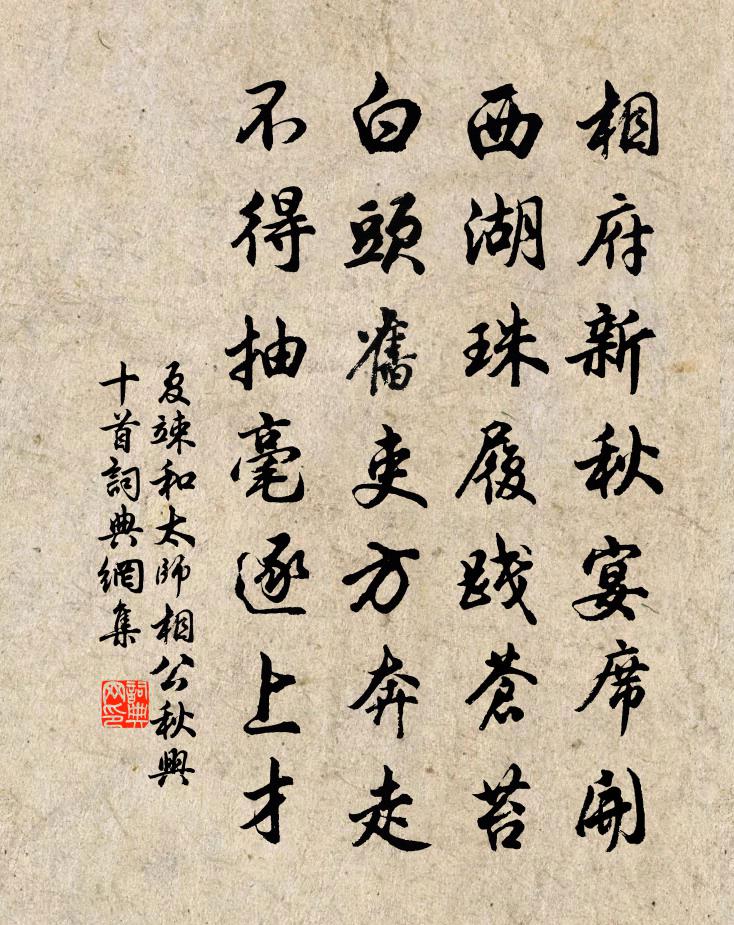 相府新秋宴席開
西湖珠履踐蒼苔
白頭舊吏方奔走
不得抽毫逐上才
夏竦和太師相公秋興
十首詞典網集
詞典
网印